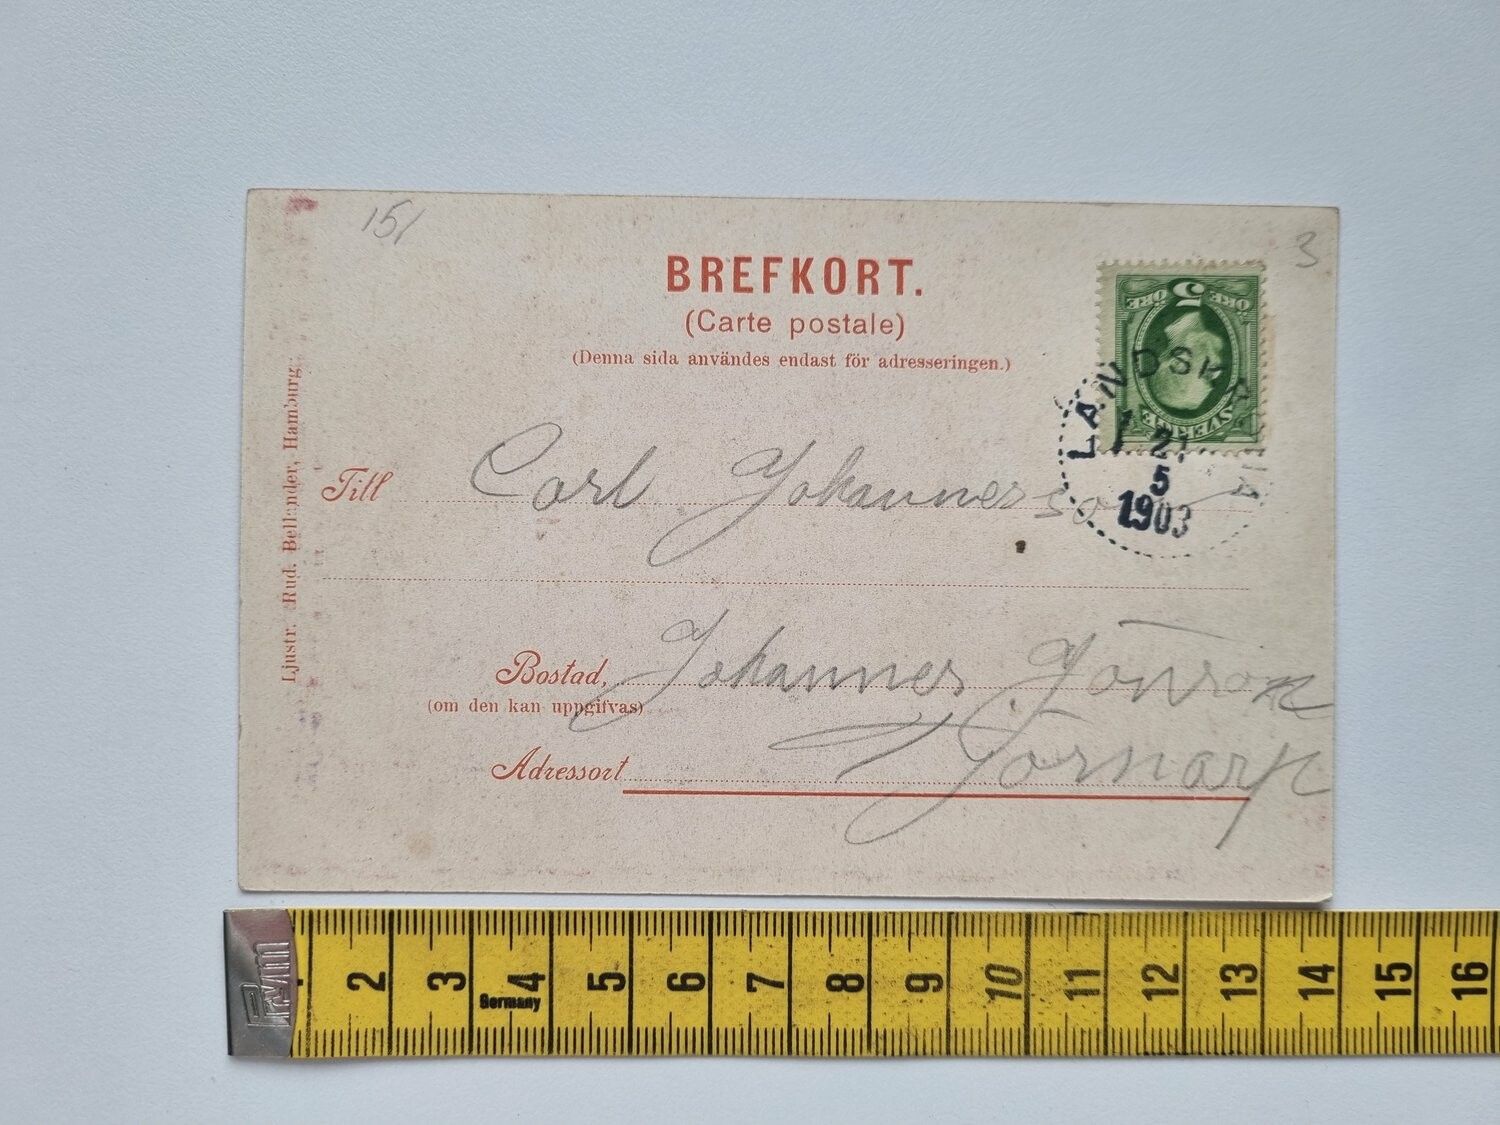 151
3
BREFKORT.
(Carte postale)
(Denna sida användes endast för adresseringen.)
ÖRE 5 ÖRE
SVERIGE
LANDSKRONA
21
5
1903
Till Carl Johannesson
Bostad, Johannes Jönson
(om den kan uppgifvas)
Adressort Tjörnarp
Ljustr. Rud. Bellander, Hamburg.
PRYM
2 3 4 5 6 7 8 9 10 11 12 13 14 15 16
Germany